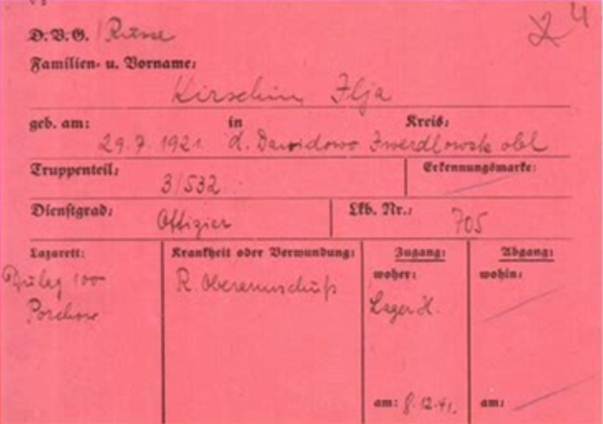 24
D.V.G. / Russe
Familien- u. Vorname:
Kirschin, Ilja
geb. am: in Kreis:
29.7.1921. d. Dawidowo Swerdlowsk obl
Truppenteil: 3/532 Erkennungsmarke:
Dienstgrad: Offizier Lkb. Nr.: 705
Lazarett: Krankheit oder Verwundung: Zugang: Abgang:
woher: wohin:
Dulag 100 R. Oberarmschuß Lager H.
Porchow
am: 8.12.41. am: